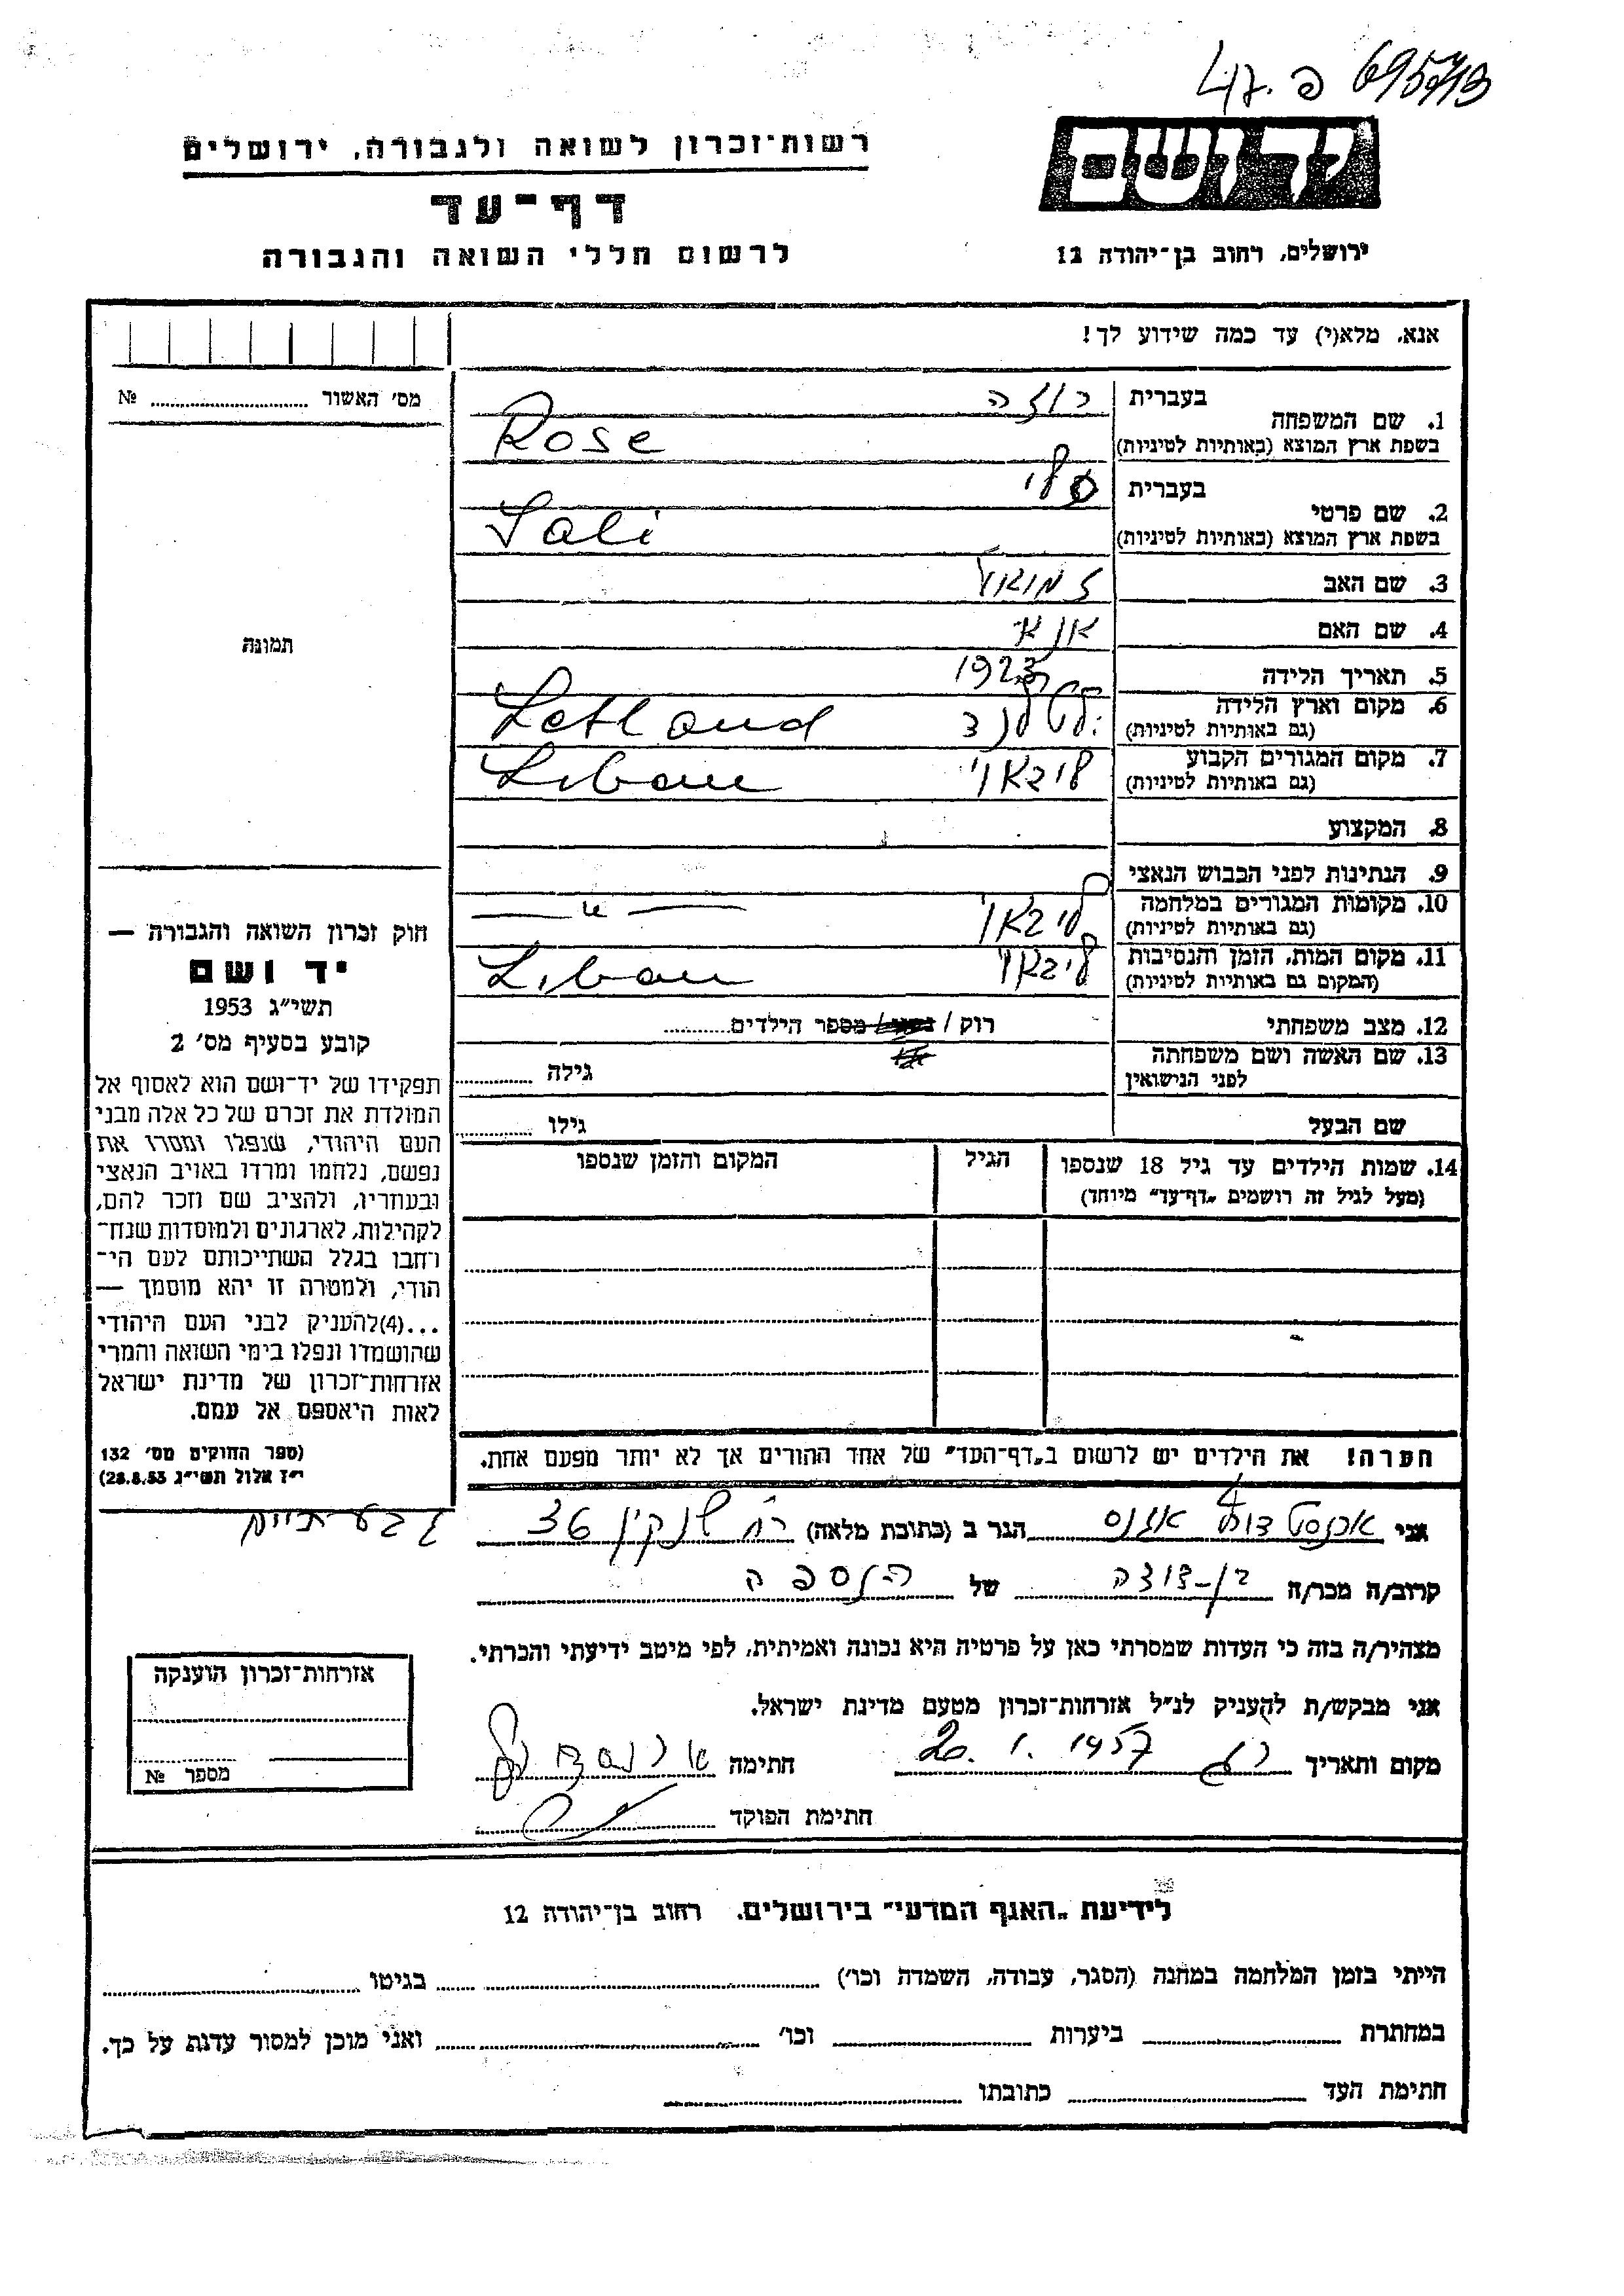 695713 פ.
רשות־זכרון לשואה ולגבורה, ירושלים
דף־עד
לרשום חללי השואה והגבורה
ידושם
ירושלים, רחוב בן־יהודה 12
אנא, מלא(י) עד כמה שידוע לך!
מס׳ האשור № 
1. שם המשפחה בעברית רוזה
בשפת ארץ המוצא (באותיות לטיניות) Rose
2. שם פרטי בעברית סלי
בשפת ארץ המוצא (באותיות לטיניות) Sali
3. שם האב זמואל
4. שם האם אנא
5. תאריך הלידה 1923
6. מקום וארץ הלידה
(גם באותיות לטיניות) לטלנד Letland
7. מקום המגורים הקבוע
(גם באותיות לטיניות) ליבאו Libau
8. המקצוע
9. הנתינות לפני הכבוש הנאצי
10. מקומות המגורים במלחמה
(גם באותיות לטיניות) ליבאו — " —
11. מקום המות, הזמן והנסיבות
(המקום גם באותיות לטיניות) ליבאו Libau
12. מצב משפחתי רוק / נשוי / מספר הילדים
13. שם האשה ושם משפחתה
לפני הנישואין גילה
שם הבעל גילו
14. שמות הילדים עד גיל 18 שנספו
(מעל לגיל זה רושמים „דף־עד” מיוחד)
הגיל
המקום והזמן שנספו
תמונה
חוק זכרון השואה והגבורה —
יד ושם
תשי״ג 1953
קובע בסעיף מס׳ 2
תפקידו של יד־ושם הוא לאסוף אל
המולדת את זכרם של כל אלה מבני
העם היהודי, שנפלו ומסרו את
נפשם, נלחמו ומרדו באויב הנאצי
ובעוזריו, ולהציב שם וזכר להם,
לקהילות, לארגונים ולמוסדות שנח־
רחבו בגלל השתייכותם לעם הי־
הודי, ולמטרה זו יהא מוסמך —
...(4)להעניק לבני העם היהודי
שהושמדו ונפלו בימי השואה והמרי
אזרחות־זכרון של מדינת ישראל
לאות היאספם אל עמם.
(ספר החוקים מס׳ 132
י״ז אלול תשי״ג 28.8.53)
הערה! את הילדים יש לרשום ב„דף־העד” של אחד ההורים אך לא יותר מפעם אחת.
אני ארנסט אגנס הגר ב (כתובת מלאה) רח׳ שנקין 36 גבעתיים
קרוב/ה מכר/ה בן־דודה של הנספה
מצהיר/ה בזה כי העדות שמסרתי כאן על פרטיה היא נכונה ואמיתית, לפי מיטב ידיעתי והכרתי.
אני מבקש/ת להעניק לנ״ל אזרחות־זכרון מטעם מדינת ישראל.
מקום ותאריך רג 20.1.1957 חתימה
חתימת הפוקד
אזרחות־זכרון הוענקה
מספר №
לידיעת „האגף המדעי” בירושלים, רחוב בן־יהודה 12
הייתי בזמן המלחמה במחנה (הסגר, עבודה, השמדה וכו׳) בגיטו
במחתרת ביערות וכו׳ ואני מוכן למסור עדות על כך.
חתימת העד כתובתו